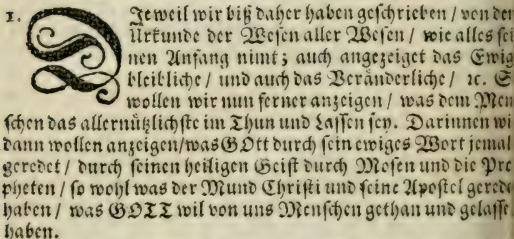 1. DIeweil wir biß daher haben geschrieben / von den
Urkunde der Wesen aller Wesen / wie alles sei
nen Anfang nimt; auch angezeiget das Ewig
bleibliche / und auch das Veränderliche / ꝛc. S
wollen wir nun ferner anzeigen / was dem Men
schen das allernützlichste im Thun und Lassen sey. Darinnen wi
dann wollen anzeigen/was GOtt durch sein ewiges Wort jemal
geredet / durch seinen heiligen Geist durch Mosen und die Pro
pheten / so wohl was der Mund Christi und seine Apostel gerede
haben / was GOTT wil von uns Menschen gethan und gelasse
haben.